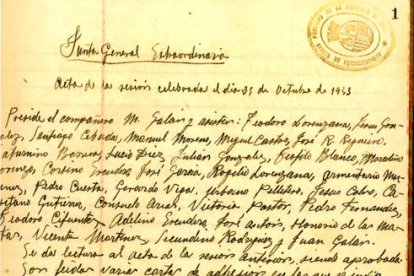 1
Junta General Extraordinaria
Acta de la sesión celebrada el día 25 de Octubre de 1953
Preside el compañero M. Galán y asisten: Teodoro Lorenzana, Juan Gon-
zalez, Santiago Cebada, Manuel Moreno, Miguel Castro, José R. Regueiro
Saturnino Barrera, Luis Diez, Julián Gonzalez, Benito Blanco, Marcelino
Lorenzo, Corsino Escudero, José Garcia, Rogelio Lorenzana, Armentario
Pedro Cuesta, Gerardo Vega, Urbano Pellitero, Jesus Calvo, Ca-
yetano Gutierrez, Consuelo Arias, Victoria Pastor, Pedro Fernandez,
Teodoro Cifuentes, Adelino Escudero, José Antón, Honorio de las Ma-
tas, Vicente Martinez, Secundino Rodriguez y Juan Galán.
Se da lectura al acta de la sesión anterior, siendo aprobada.
Son leidas varias cartas de adhesión